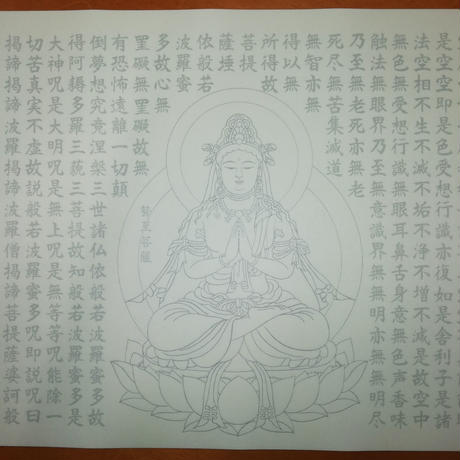 是空空即是色受想行識亦復如是舎利子是諸
法空相不生不滅不垢不浄不増不減是故空中
無色無受想行識無眼耳鼻舌身意無色声香味
触法無眼界乃至無意識界無無明亦無無明尽
乃至無老死亦無老
死尽無苦集滅道
無智亦無
得以無
所得故
菩提
薩埵
依般若
波羅蜜
多故心無
罣礙無罣礙故無
有恐怖遠離一切顛
倒夢想究竟涅槃三世諸仏依般若波羅蜜多故
得阿耨多羅三藐三菩提故知般若波羅蜜多是
大神呪是大明呪是無上呪是無等等呪能除一
切苦真実不虚故説般若波羅蜜多呪即説呪曰
掲諦掲諦波羅掲諦波羅僧掲諦菩提薩婆訶般
勢至菩薩